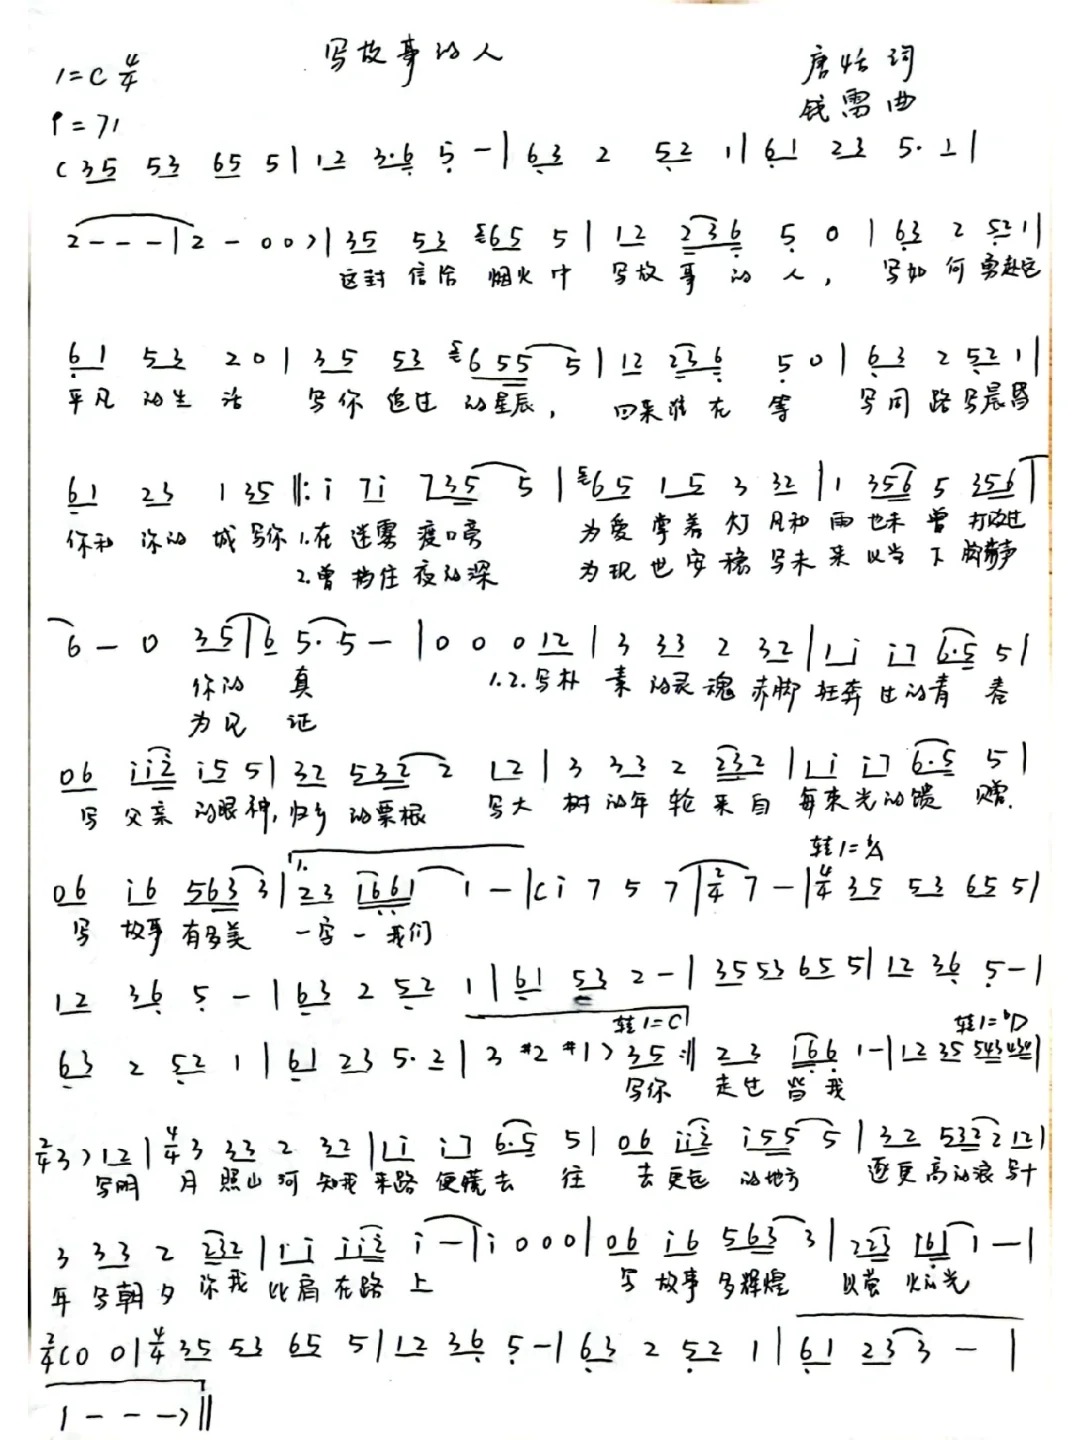 写故事的人
1=C 4/4
唐恬 词
钱雷 曲
♩=71
( 35 53 65 5 | 12 3·6 5 - | 63 2 52 1 | 61 23 5· 1 |
2 - - - | 2 - 0 0 ) | 35 53 65 5 | 12 236 5 0 | 63 2 52 1 |
这封 信给 烟火中 写故事的人, 写如何勇赴远
61 53 2 0 | 35 53 655 5 | 12 236 5 0 | 63 2 52 1 |
平凡的生活 写你追过的星辰, 回来谁在等 写同路写晨昏
61 23 1 35 ‖: i 7i 735 5 | 65 15 3 32 | 1 356 5 356 |
你和你的城写你 1.在迷雾渡口旁 为爱掌着灯 风和雨也未曾打改过
2.曾挡住夜的深 为现世安稳写未来以当下脚静声
6 - 0 35 | 6 5· 5 - | 0 0 0 12 | 3 33 2 32 | 1i i7 6·5 5 |
你的真 1.2.写朴素的灵魂赤脚狂奔过的青春
为见证
06 ii2 i5 5 | 32 532 2 12 | 3 33 2 232 | 1i i7 6·5 5 |
写父亲的眼神,归乡的票根 写大树的年轮来自每束光的馈赠.
转1=A
06 i6 563 3 | 1. 23 i661 1 - | ( i 7 5 7 | 2/4 7 - | 4/4 35 53 65 5 |
写 故事有多美 一字一我们
12 36 5 - | 63 2 52 1 | 61 53 2 - | 35 53 65 5 | 12 36 5 - |
转1=C 转1=bD
63 2 52 1 | 61 23 5· 2 | 3 #2 #1 ) 35 :‖ 23 i66 1 - | 12 35 543 434 |
写你 走过皆我
2/4 3 ) 12 | 4/4 3 33 2 32 | 1i i7 6·5 5 | 06 ii2 i55 5 | 32 532 2 12 |
写明月照山河知我来路便慌去往 去更远的地方 逐更高的浪写十
3 33 2 232 | 1i ii2 i - | i 0 0 0 | 06 i6 563 3 | 223 161 1 - |
年写朝夕你我比肩在路上 写故事多辉煌 以萤火微光
2/4 ( 0 0 | 4/4 35 53 65 5 | 12 36 5 - | 63 2 52 1 | 61 23 3 - |
1 - - - ) ‖